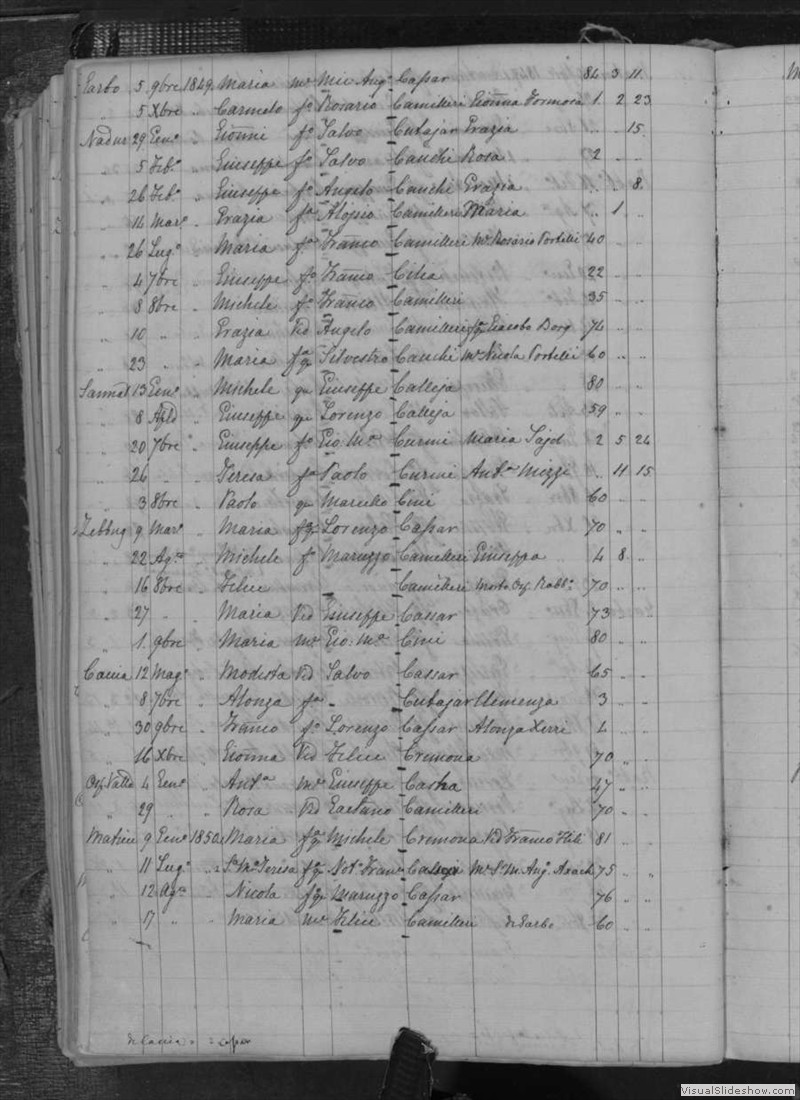 Garbo 5 9bre 1849 Maria mᵉ Mic Angᵒ Caſsar 84 3 11
" 5 Xbre " Carmelo fᵒ Rosario Camilleri Gioᵃnna Formosa 1 2 23
Nadur 29 Genᵒ " Gioᵃnni fᵒ Salvo Cutajar Grazia " " 15
" 5 Febᵒ " Giuseppe fᵒ Salvo Cauchi Rosa 2 " "
" 26 Febᵒ " Giuseppe fᵒ Angelo Cauchi Grazia " " 8
" 14 Marᵒ " Grazia fᵃ Alojsio Camilleri Maria " 1 "
" 26 Lugᵒ " Maria fᵃ Franco Camilleri Mᵉ Rosario Portelli 40 " "
" 4 7bre " Giuseppe fᵒ Franco Cilia 22 " "
" 8 8bre " Michele fᵒ Franco Camilleri 35 " "
" 10 " " Grazia Vid Angelo Camilleri fq Giacobo Borg 74 " "
" 23 " " Maria fq Silvestro Cauchi Mᵉ Nicola Portelli 60 " "
Sannat 13 Genᵒ " Michele qᵐ Giuseppe Calleja 80 " "
" 8 " Giuseppe qᵐ Lorenzo Calleja 59 " "
" 20 7bre " Giuseppe fᵒ Gio Mᵃ Curmi Maria 2 5 24
" 26 " " Teresa fᵃ Paolo Curmi Antᵃ Mizzi " 11 15
" 3 8bre " Paolo qᵐ Marcello Cini 60 " "
Zebbug 9 Marᵒ " Maria fq Lorenzo Caſsar 70 " "
" 22 Agᵗᵒ " Michele fᵒ Maruzzo Camilleri Giuseppa 4 8 "
" 16 8bre " Felice - Camilleri Morto Osp Rabᵗᵒ 70 " "
" 27 " " Maria Vid Giuseppe Cassar 73 " "
" 1 9bre " Maria mᵉ Gio Mᵃ Cini 80 " "
Caccia 12 Magᵒ " Modesta Vid Salvo Cassar 65 " "
" 8 7bre " Alonza fᵃ - Cutajar Clemenza 3 " "
" 30 9bre " Franco fᵒ Lorenzo Caſsar Alonza Xerri 4 " "
" 16 Xbre " Gioᵃnna Vid Felice Cremona 70 " "
4 Genᵒ " Antᵃ Mᵉ Giuseppe 47 " "
" 29 " " Rosa Vid Gaetano Camilleri 70 " "
Matrice 9 Genᵒ 1850 Maria fq Michele Cremona Vid Franco Hili 81 " "
" 11 Lugᵒ " Sʳ Mᵃ Teresa fq Notᵒ Franᶜᵒ Calleja Mᵉ Sʳ M. Angᵒ 75 " "
" 12 Agᵗᵒ " Nicola fq Maruzzo Caſsar 76 " "
" 17 " " Maria mᵉ Felice Camilleri di Garbo 60 " "
VisualSlideshow.com